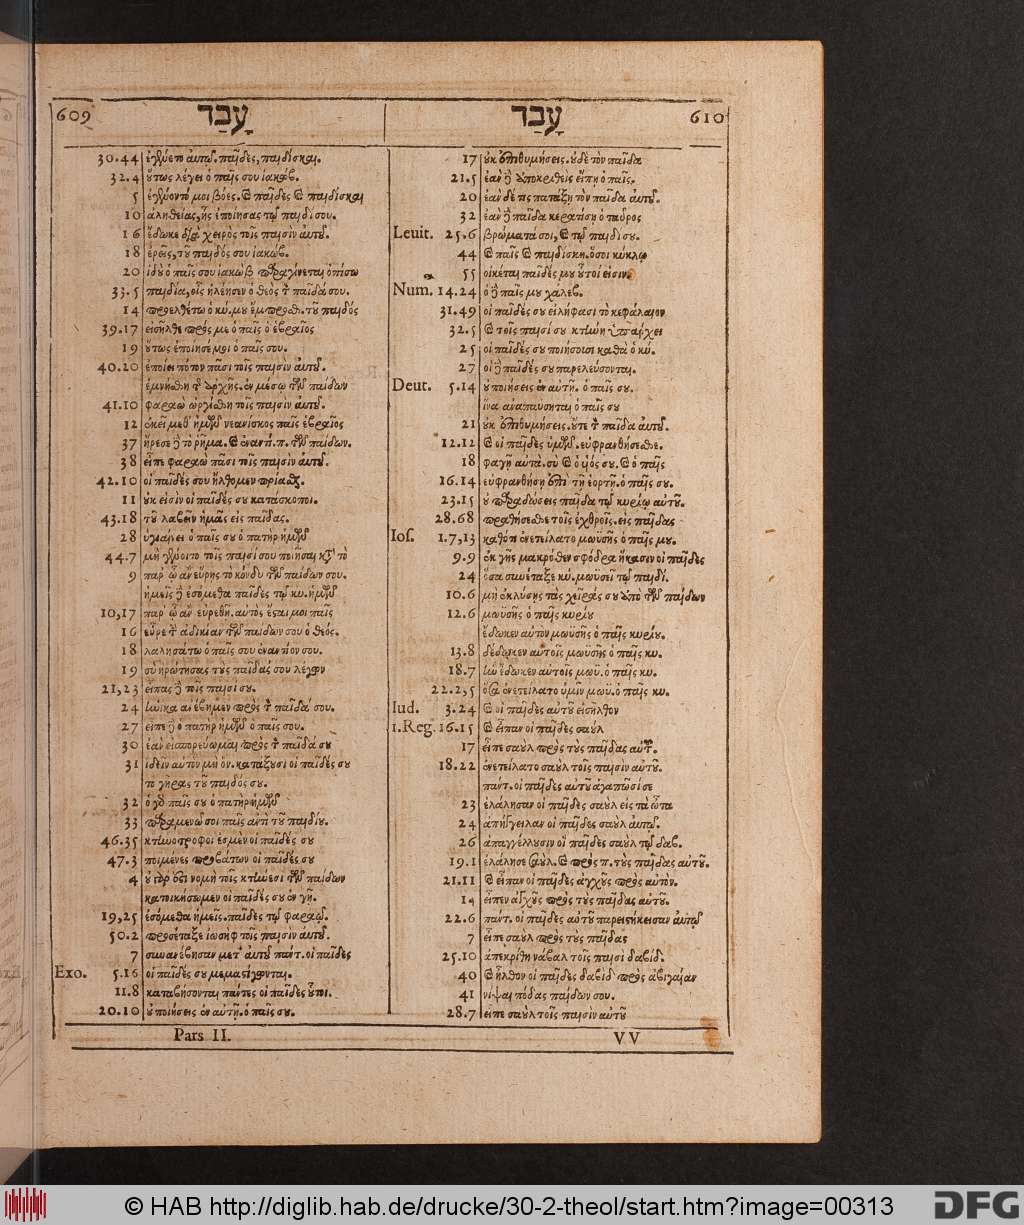 609 עָבַד
30.44 ἐγένετο αὐτῷ. παῖδες, παιδίσκαι.
32.4 οὕτως λέγει ὁ παῖς σου ἰακώβ.
5 ἐγένοντό μοι βόες. καὶ παῖδες καὶ παιδίσκαι
10 ἀληθείας, ἧς ἐποίησας τῷ παιδί σου.
16 ἔδωκε διὰ χειρὸς τοῖς παισὶν αὐτοῦ.
18 ἐρεῖς, τοῦ παιδός σου ἰακώβ.
20 ἰδοὺ ὁ παῖς σου ἰακὼβ παραγίνεται ὀπίσω
33.5 παιδία, οἷς ἠλέησεν ὁ θεὸς τὸν παῖδά σου.
14 προελθέτω ὁ κύ. μου ἔμπροσθ. τοῦ παιδός
39.17 εἰσῆλθε πρός με ὁ παῖς ὁ ἑβραῖος
19 οὕτως ἐποίησέ μοι ὁ παῖς σου.
40.20 ἐποίει πότον πᾶσι τοῖς παισὶν αὐτοῦ.
ἐμνήσθη τῆς ἀρχῆς. ἐν μέσῳ τῶν παίδων
41.10 φαραὼ ὠργίσθη τοῖς παισὶν αὐτοῦ.
12 ἐκεῖ μεθ' ἡμῶν νεανίσκος παῖς ἑβραῖος
37 ἤρεσε δὲ τὸ ῥῆμα. καὶ ἐναντ. π. τῶν παίδων.
38 εἶπε φαραὼ πᾶσι τοῖς παισὶν αὐτοῦ.
42.10 οἱ παῖδές σου ἤλθομεν πρίασθ.
11 οὐκ εἰσὶν οἱ παῖδές σου κατάσκοποι.
43.18 τοῦ λαβεῖν ἡμᾶς εἰς παῖδας.
28 ὑγιαίνει ὁ παῖς σου ὁ πατὴρ ἡμῶν
44.7 μὴ γένοιτο τοῖς παισί σου ποιῆσαι κατὰ τὸ
9 παρ' ᾧ ἂν εὕρῃς τὸ κόνδυ τῶν παίδων σου.
ἡμεῖς δὲ ἐσόμεθα παῖδες τῷ κυ. ἡμῶν
10,17 παρ' ᾧ ἂν εὑρεθῇ. αὐτὸς ἔσται μοι παῖς
16 εὗρε τὴν ἀδικίαν τῶν παίδων σου ὁ θεός.
18 λαλησάτω ὁ παῖς σου ἐναντίον σου.
19 σὺ ἠρώτησας τοὺς παῖδάς σου λέγων
21,23 εἶπας δὲ τοῖς παισί σου.
24 ἡνίκα ἀνέβημεν πρὸς τὸν παῖδά σου.
27 εἶπε δὲ ὁ πατὴρ ἡμῶν ὁ παῖς σου.
30 ἐὰν εἰσπορεύωμαι πρὸς τὸν παῖδά σου
31 ἰδεῖν αὐτὸν μὴ ὄν. κατάξουσι οἱ παῖδές σου
τὸ γῆρας τοῦ παιδός σου.
32 ὁ γὰρ παῖς σου ὁ πατὴρ ἡμῶν
33 παραμενῶ σοι παῖς ἀντὶ τοῦ παιδίου.
46.35 κτηνοτρόφοι ἐσμὲν οἱ παῖδές σου
47.3 ποιμένες προβάτων οἱ παῖδές σου
4 οὐ γάρ ἐστι νομὴ τοῖς κτήνεσι τῶν παίδων
κατοικήσωμεν οἱ παῖδές σου ἐν γῇ.
19,25 ἐσόμεθα ἡμεῖς. παῖδες τῷ φαραῷ.
50.2 προσέταξε ἰωσὴφ τοῖς παισὶν αὐτοῦ.
7 συνανέβησαν μετ' αὐτοῦ πάντ. οἱ παῖδες
Exo. 5.16 οἱ παῖδές σου μεμαστίγωνται.
11.8 καταβήσονται πάντες οἱ παῖδες οὗτοι.
20.10 οὐ ποιήσεις ἐν αὐτῇ. ὁ παῖς σου.
Pars II.
עָבַד 610
17 οὐκ ἐπιθυμήσεις. οὐδὲ τὸν παῖδα
21.5 ἐὰν δὲ ἀποκριθεὶς εἴπῃ ὁ παῖς.
20 ἐὰν δέ τις πατάξῃ τὸν παῖδα αὐτοῦ.
32 ἐὰν δὲ παῖδα κερατίσῃ ὁ ταῦρος
Leuit. 25.6 βρώματά σοι, καὶ τῷ παιδί σου.
44 καὶ παῖς καὶ παιδίσκη. ὅσοι κύκλῳ
55 οἰκέται παῖδές μου οὗτοί εἰσιν.
Num. 14.24 ὁ δὲ παῖς μου χαλεβ.
31.49 οἱ παῖδές σου εἰλήφασι τὸ κεφάλαιον
32.5 καὶ τοῖς παισί σου κτήνη ὑπάρχει
25 οἱ παῖδές σου ποιήσουσι καθὰ ὁ κύ.
27 οἱ δὲ παῖδές σου παρελεύσονται.
Deut. 5.14 οὐ ποιήσεις ἐν αὐτῇ. ὁ παῖς σου.
ἵνα ἀναπαύσηται ὁ παῖς σου
21 οὐκ ἐπιθυμήσεις. οὔτε τὸν παῖδα αὐτοῦ.
12.12 καὶ οἱ παῖδες ὑμῶν. εὐφρανθήσεσθε.
18 φαγῇ αὐτά. σὺ καὶ ὁ υἱός σου. καὶ ὁ παῖς
16.14 εὐφρανθήσῃ ἐπὶ τῇ ἑορτῇ. ὁ παῖς σου.
23.15 οὐ παραδώσεις παῖδα τῷ κυρίῳ αὐτοῦ.
28.68 πραθήσεσθε τοῖς ἐχθροῖς. εἰς παῖδας
Ios. 1.7,13 καθότι ἐνετείλατο μωϋσῆς ὁ παῖς μου.
9.9 ἐκ γῆς μακρόθεν σφόδρα ἥκασιν οἱ παῖδές
24 ὅσα συνέταξε κύ. μωϋσεῖ τῷ παιδί.
10.6 μὴ ἐκλύσῃς τὰς χεῖράς σου ἀπὸ τῶν παίδων
12.6 μωϋσῆς ὁ παῖς κυρίου
ἔδωκεν αὐτὸν μωϋσῆς ὁ παῖς κυρίου.
13.8 δέδωκεν αὐτοῖς μωϋσῆς ὁ παῖς κυ.
18.7 ἣν ἔδωκεν αὐτοῖς μωϋ. ὁ παῖς κυ.
22.2,5 ὅσα ἐνετείλατο ὑμῖν μωϋ. ὁ παῖς κυ.
Iud. 3.24 καὶ οἱ παῖδες αὐτοῦ εἰσῆλθον
1.Reg. 16.15 καὶ εἶπαν οἱ παῖδες σαοὺλ
17 εἶπε σαοὺλ πρὸς τοὺς παῖδας αὐτοῦ.
18.22 ἐνετείλατο σαοὺλ τοῖς παισὶν αὐτοῦ.
πάντ. οἱ παῖδες αὐτοῦ ἀγαπῶσί σε
23 ἐλάλησαν οἱ παῖδες σαοὺλ εἰς τὰ ὦτα
24 ἀπήγγειλαν οἱ παῖδες σαοὺλ αὐτῷ.
26 ἀπαγγέλλουσιν οἱ παῖδες σαοὺλ τῷ δαβ.
19.1 ἐλάλησε σαούλ. καὶ πρὸς π. τοὺς παῖδας αὐτοῦ.
21.11 καὶ εἶπαν οἱ παῖδες ἀγχοῦς πρὸς αὐτόν.
14 εἶπεν ἀγχοῦς πρὸς τοὺς παῖδας αὐτοῦ.
22.6 πάντ. οἱ παῖδες αὐτοῦ παρειστήκεισαν αὐτῷ
7 εἶπε σαοὺλ πρὸς τοὺς παῖδας
25.10 ἀπεκρίθη νάβαλ τοῖς παισὶ δαβίδ.
40 καὶ ἦλθον οἱ παῖδες δαβὶδ πρὸς ἀβιγαίαν
41 νίψαι πόδας παίδων σου.
28.7 εἶπε σαοὺλ τοῖς παισὶν αὐτοῦ
VV
© HAB http://diglib.hab.de/drucke/30-2-theol/start.htm?image=00313
DFG